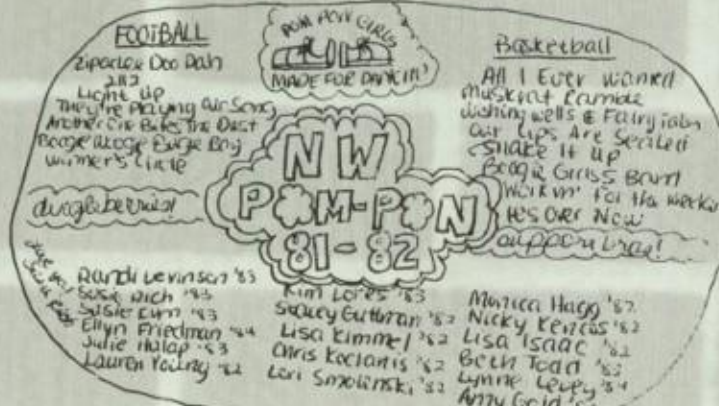 FOOTBALL
Zipadee Doo Dah
Light Up
They're Playing Our Song
Another One Bites The Dust
Boogie Woogie Bugle Boy
Winner's Circle
dingleberries!
POM PON GIRLS
MADE FOR DANCIN'
Basketball
All I Ever Wanted
Muskrat Ramble
Wishing Wells & Fairytales
Our Lips Are Sealed
Shake It Up
Boogie Girls
Workin' for the Weekend
It's Over Now
support bras!
NW
POM-PON
81-82
Randi Levinson '83
Susie Rich '83
Susie '83
Ellyn Friedman '84
Julie Hulap '83
Lauren Young '82
Kim '83
Stacey Guttman '82
Lisa Kimmel '82
Chris Koclanis '82
Lori Smolinski '82
Monica Hagg '82
Nicky '82
Lisa Isaac '82
Beth Todd '82
Lynne Levey '84
Amy Gold